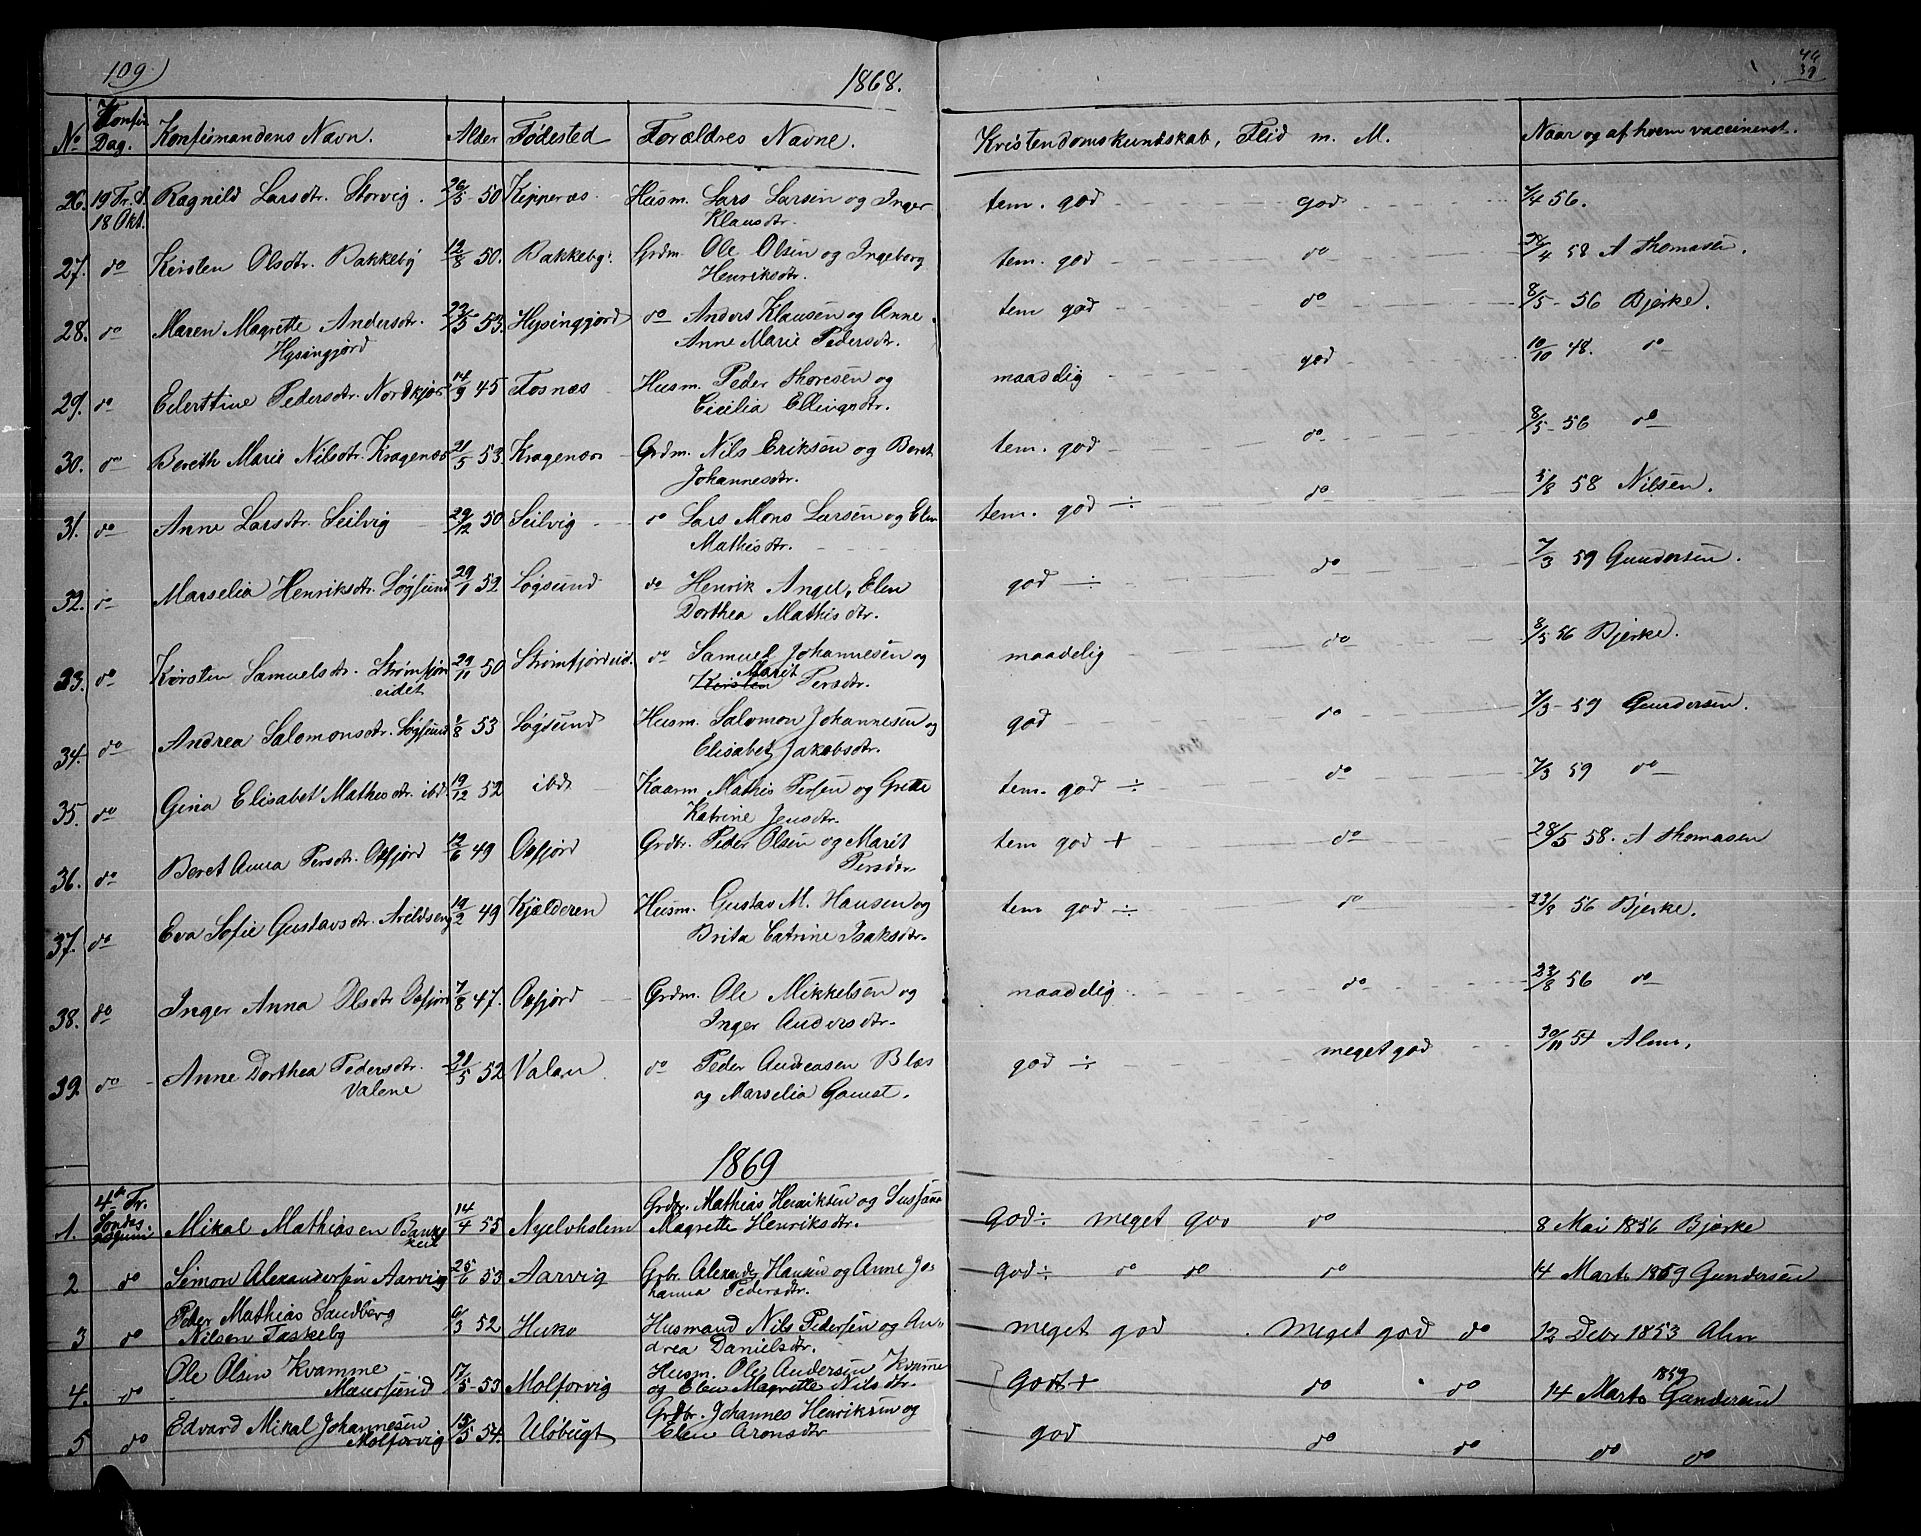 109)
1868.
No Konfir. Dag. Konfirmandens Navn. Alder Fødested Forældres Navne. Kristendomskundskab, Flid m. M. Naar og af hvem vaccineret.
26. 19 Tr. S. Ragnild Larsdtr. Storvig. 26/5 - 50 Kipperæs Husm. Lars Larsen og Inger tem. god god 7/4 56.
18 Okt. Klausdtr.
27. do Kirsten Olsdtr. Bakkeby 12/8 50. Bakkeby. Grdm. Ole Olsen og Ingeborg tem. god do 28/4 58 A Thomasen.
Henriksdtr.
28. do Maren Magrette Andersdtr. 23/5 53. Hysingjord do Anders Klausen og Anne tem god do 8/5 - 56 Bjerke.
Hysingjord Anne Marie Pedersdtr.
29. do Edertine Pedersdtr. Nordkjos 14/9 45 Fosnæs Husm. Peder Thoresen og maadelig god 10/10 48. do
Cicilia Ellingsdtr.
30. do Bereth Marie Nilsdtr. Kragenæs 21/5 53. Kragenæs Grdm. Nils Eriksen og Beret tem. god do 8/5 - 56 do
Johannesdtr.
31. do Anne Larsdtr. Seilvig 29/12 50 Seilvig do Lars Mons Larsen og Elen tem. god ÷ do 5/8 58 Nilsen.
Mathisdtr.
32. do Marselia Henriksdtr. Løgsund 29/1 52 Løgsund do Henrik Angel, Elen god ÷ do 7/3 59 Gundersen.
Dorthea Mathisdtr.
33. do Kirsten Samuelsdtr. Strømfjord 29/11 50 Strømfjordeid. do Samuel Johannesen og maadelig do 8/5 56 Bjerke.
eidet Kirsten Marit Persdtr.
34. do Andrea Salomonsdtr. Løgsund 1/8 53 Løgsund Husm. Salomon Johannesen og god do 7/3 - 59 Gundersen.
Elisabet Jakobsdtr.
35. do Gina Elisabet Mathisdtr. ibd. 19/12 52 ibd Kaarm Mathis Persen og Grete tem. god ÷ do 7/3 59 do
Katrine Jensdtr.
36. do Beret Anna Persdtr. Oxfjord 12/6 49 Oxfjord Grdbr. Peder Olsen og Marit tem god + do 28/5 58. A Thomasen
Persdtr
37. do Eva Sofie Gustavsdtr. Arildseng 19/2 49 Kjælderen Husm. Gustav M. Hansen og tem god ÷ do 23/8 56 Bjerke.
Brita Catrine Isaksdtr.
38. do Inger Anna Olsdtr Oxfjord 7/8 47. Oxfjord Grdm. Ole Mikkelsen og maadelig. do 23/8 56 do
Inger Andersdtr.
39. do Anne Dorthea Pedersdtr. 21/5 52 Valan do Peder Andreasen Blæs god ÷ meget god 30/11 54 Alm.
Valene og Marselia Gamst.
1869
1. 4de Tr. Søndag Mikal Mathiasen 14/4 55 Nyelvholm Grdbr. Mathias Henriksen og Sussanna god ÷ meget god do 8 Mai 1856 Bjerke
Magrette Henriksdtr.
2 do Simon Alexandersen Aarvig 25/6 53 Aarvig Grbr. Alexander Hansen og Anne Jo- god ÷ do do do 14 Marts 1859 Gundersen
hanna Pedersdtr.
3 do Peder Mathias Sandberg 6/3 52 Huko Husmand Nils Pedersen og An- meget god meget god do 12 Debr 1853 Alm
Nilsen Taskeby drea Danielsdtr.
4. do Ole Olsen Kvamme 17/5 - 53 Molforvig Husm. Ole Andersen Kvamme godt + do do 14 Marts 1859 Gundersen
Maursund og Elen Magrette Nilsdtr.
5 do Edvard Mikal Johannesen 13/5 54. Uløbugt Grdbr. Johannes Henriksen og god do do do do
Molforvig Elen Aronsdtr